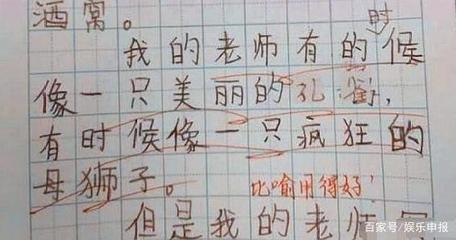 酒窝。
我的老师有的时候
像一只美丽的孔雀，
有时候像一只疯狂的
母狮子。 比喻用得好！
但是我的老师
百家号/娱乐申报